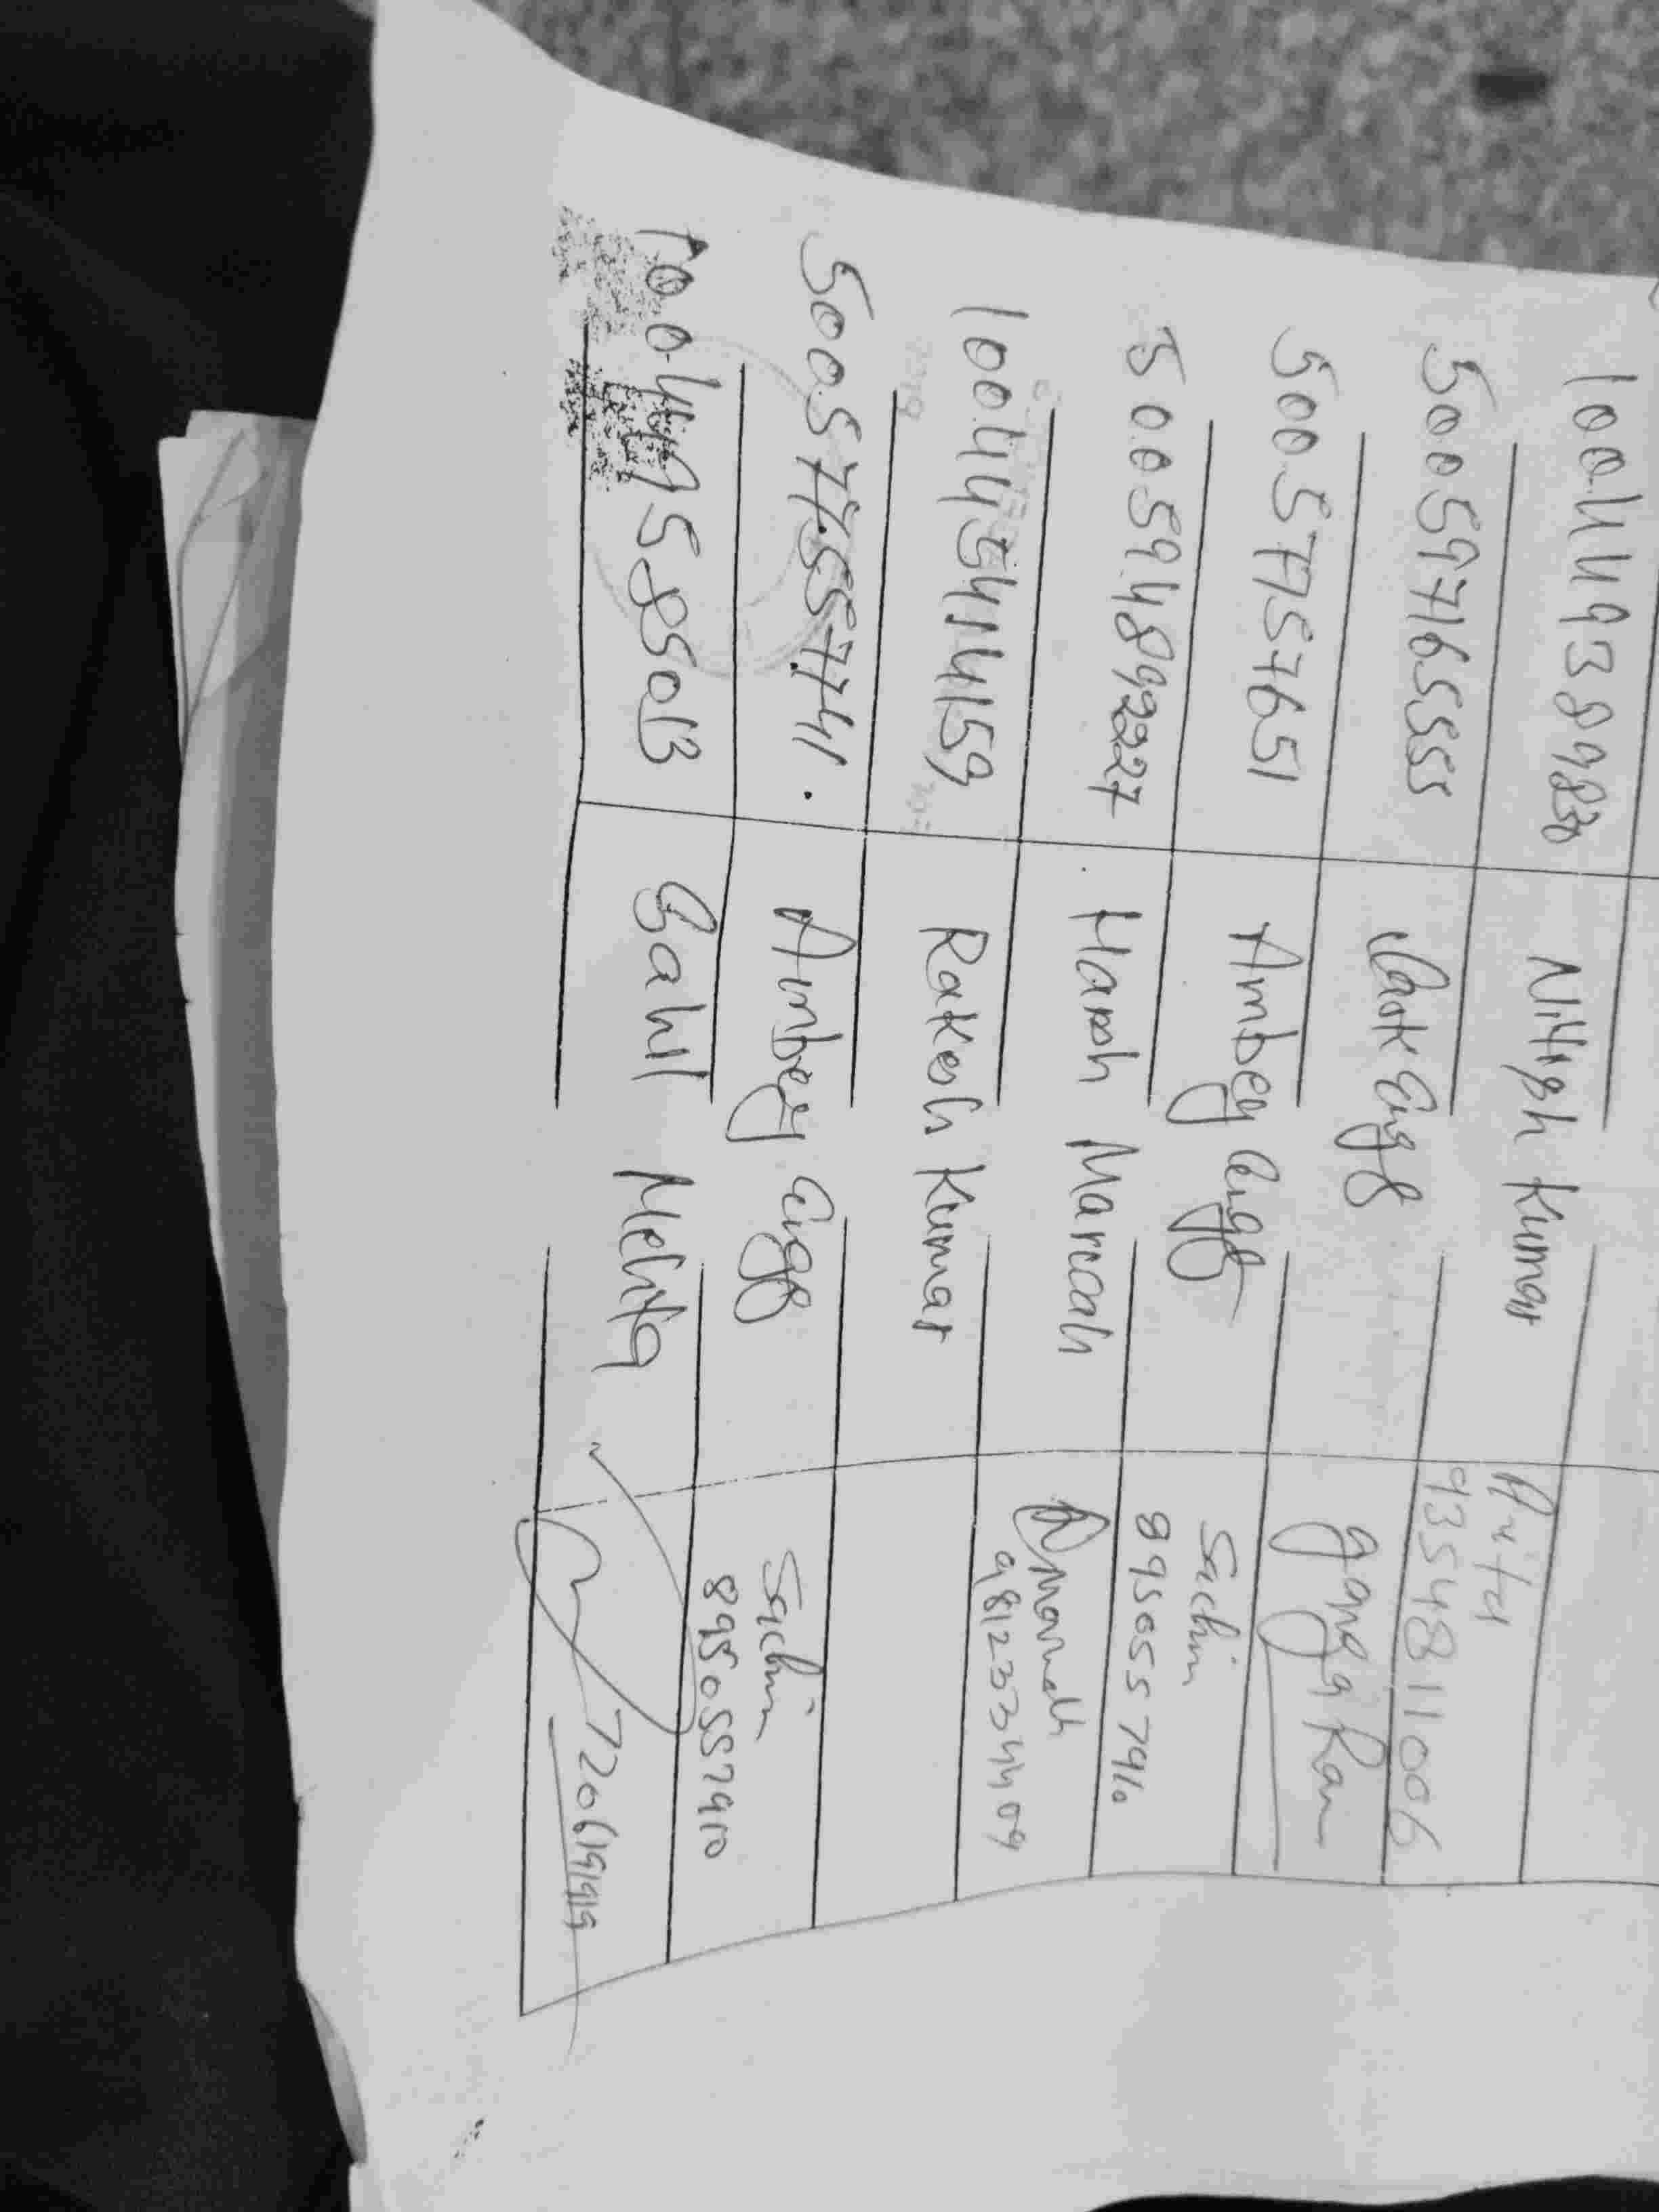 100449389830 Nitish Kumar Anita
9354811006
50059716555 Engg Ganga Ram
50057757651 Ambey Engg Sachin
8950557910
50059489227 Harsh Marwah Marwah
9812334409
100445414159 Rakesh Kumar
50057755741. Ambey Engg Sachin
8950557910
Sahil Mehta 7206191919